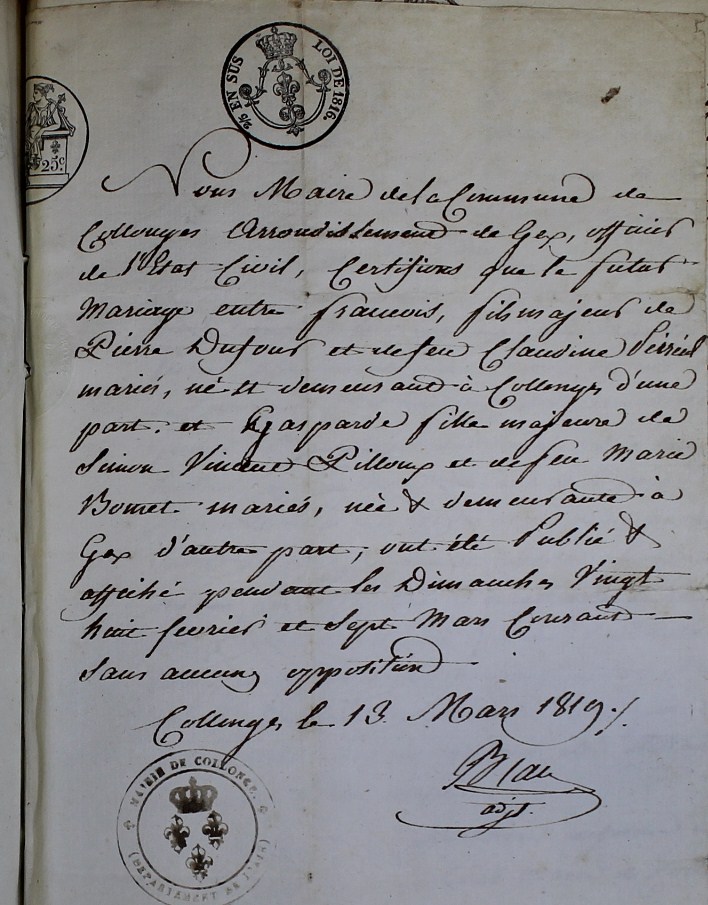 2/5 EN SUS
LOI DE 1816.
25 c.
Nous Maire de la Commune de
Collonges Arrondissement de Gex, officier
de l'Etat Civil, Certifions que le futur
Mariage entre francois, fils majeur de
Pierre Dufour et de feu Claudine
mariés, né et demeurant à Collonges d'une
part. et Gasparde fille majeure de
Simon Vincent Pilloux et de feu Marie
Bomet mariés, née & demeurante à
Gex d'autre part, ont été Publié &
affiché pendant les Dimanches Vingt
huit fevrier et Sept Mars Courant
sans aucune opposition
Collonges le 13. Mars 1819 ./.
adjt.
MAIRIE DE COLLONGE.
(DEPARTEMENT DE L'AIN)